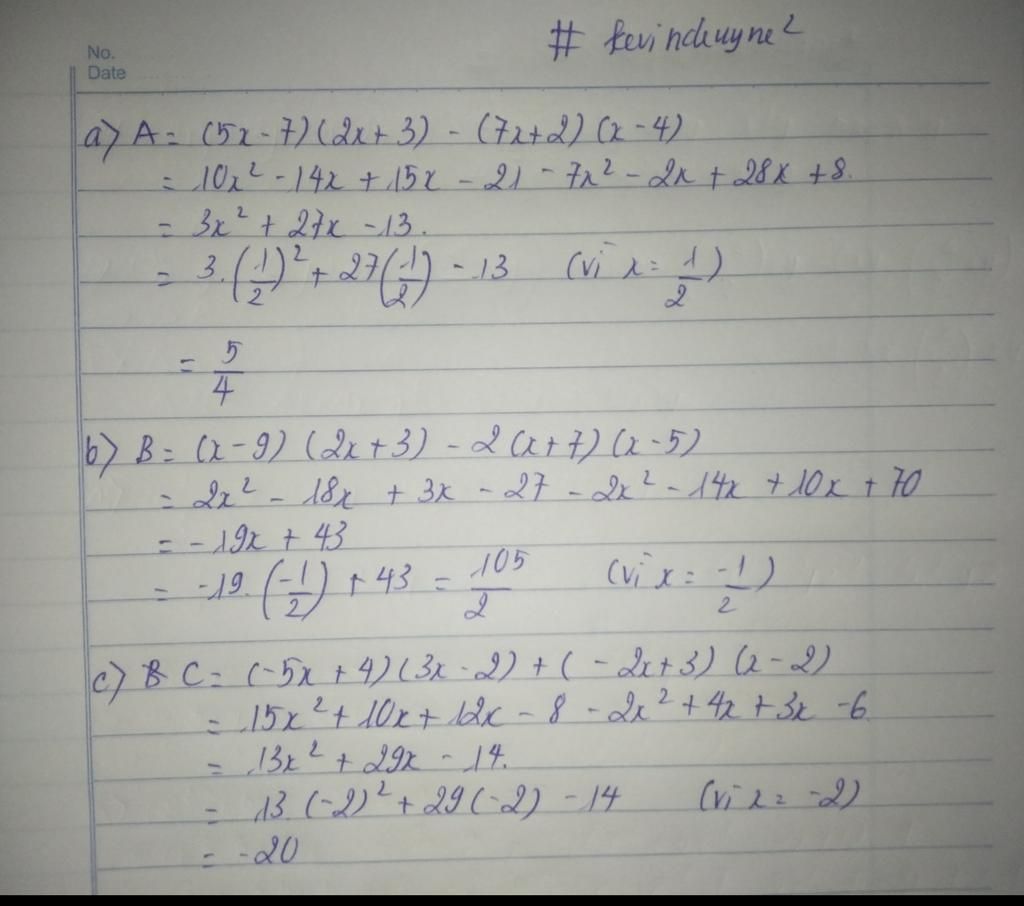 # kevinchuyne²
No.
Date
a) A = (5x - 7)(2x + 3) - (7x + 2)(x - 4)
= 10x² - 14x + 15x - 21 - 7x² - 2x + 28x + 8.
= 3x² + 27x - 13.
= 3.(1/2)² + 27(1/2) - 13 (vì x = 1/2)
= 5/4
b) B = (x - 9)(2x + 3) - 2(x + 7)(x - 5)
= 2x² - 18x + 3x - 27 - 2x² - 14x + 10x + 70
= - 19x + 43
= -19.(-1/2) + 43 = 105/2 (vì x = -1/2)
c) C = (-5x + 4)(3x - 2) + (-2x + 3)(x - 2)
= 15x² + 10x + 12x - 8 - 2x² + 4x + 3x - 6
= 13x² + 29x - 14.
= 13.(-2)² + 29(-2) - 14 (vì x = -2)
= -20